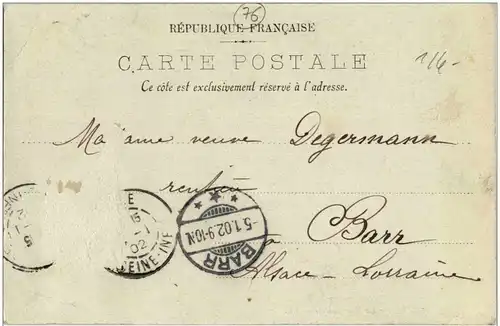 76
RÉPUBLIQUE FRANÇAISE
CARTE POSTALE
116-
Ce côté est exclusivement réservé à l'adresse.
Madame veuve Degermann
rentière
à Barr
Alsace-Lorraine
-5.1.02.9-10N.
BARR
02
SEINE-INF